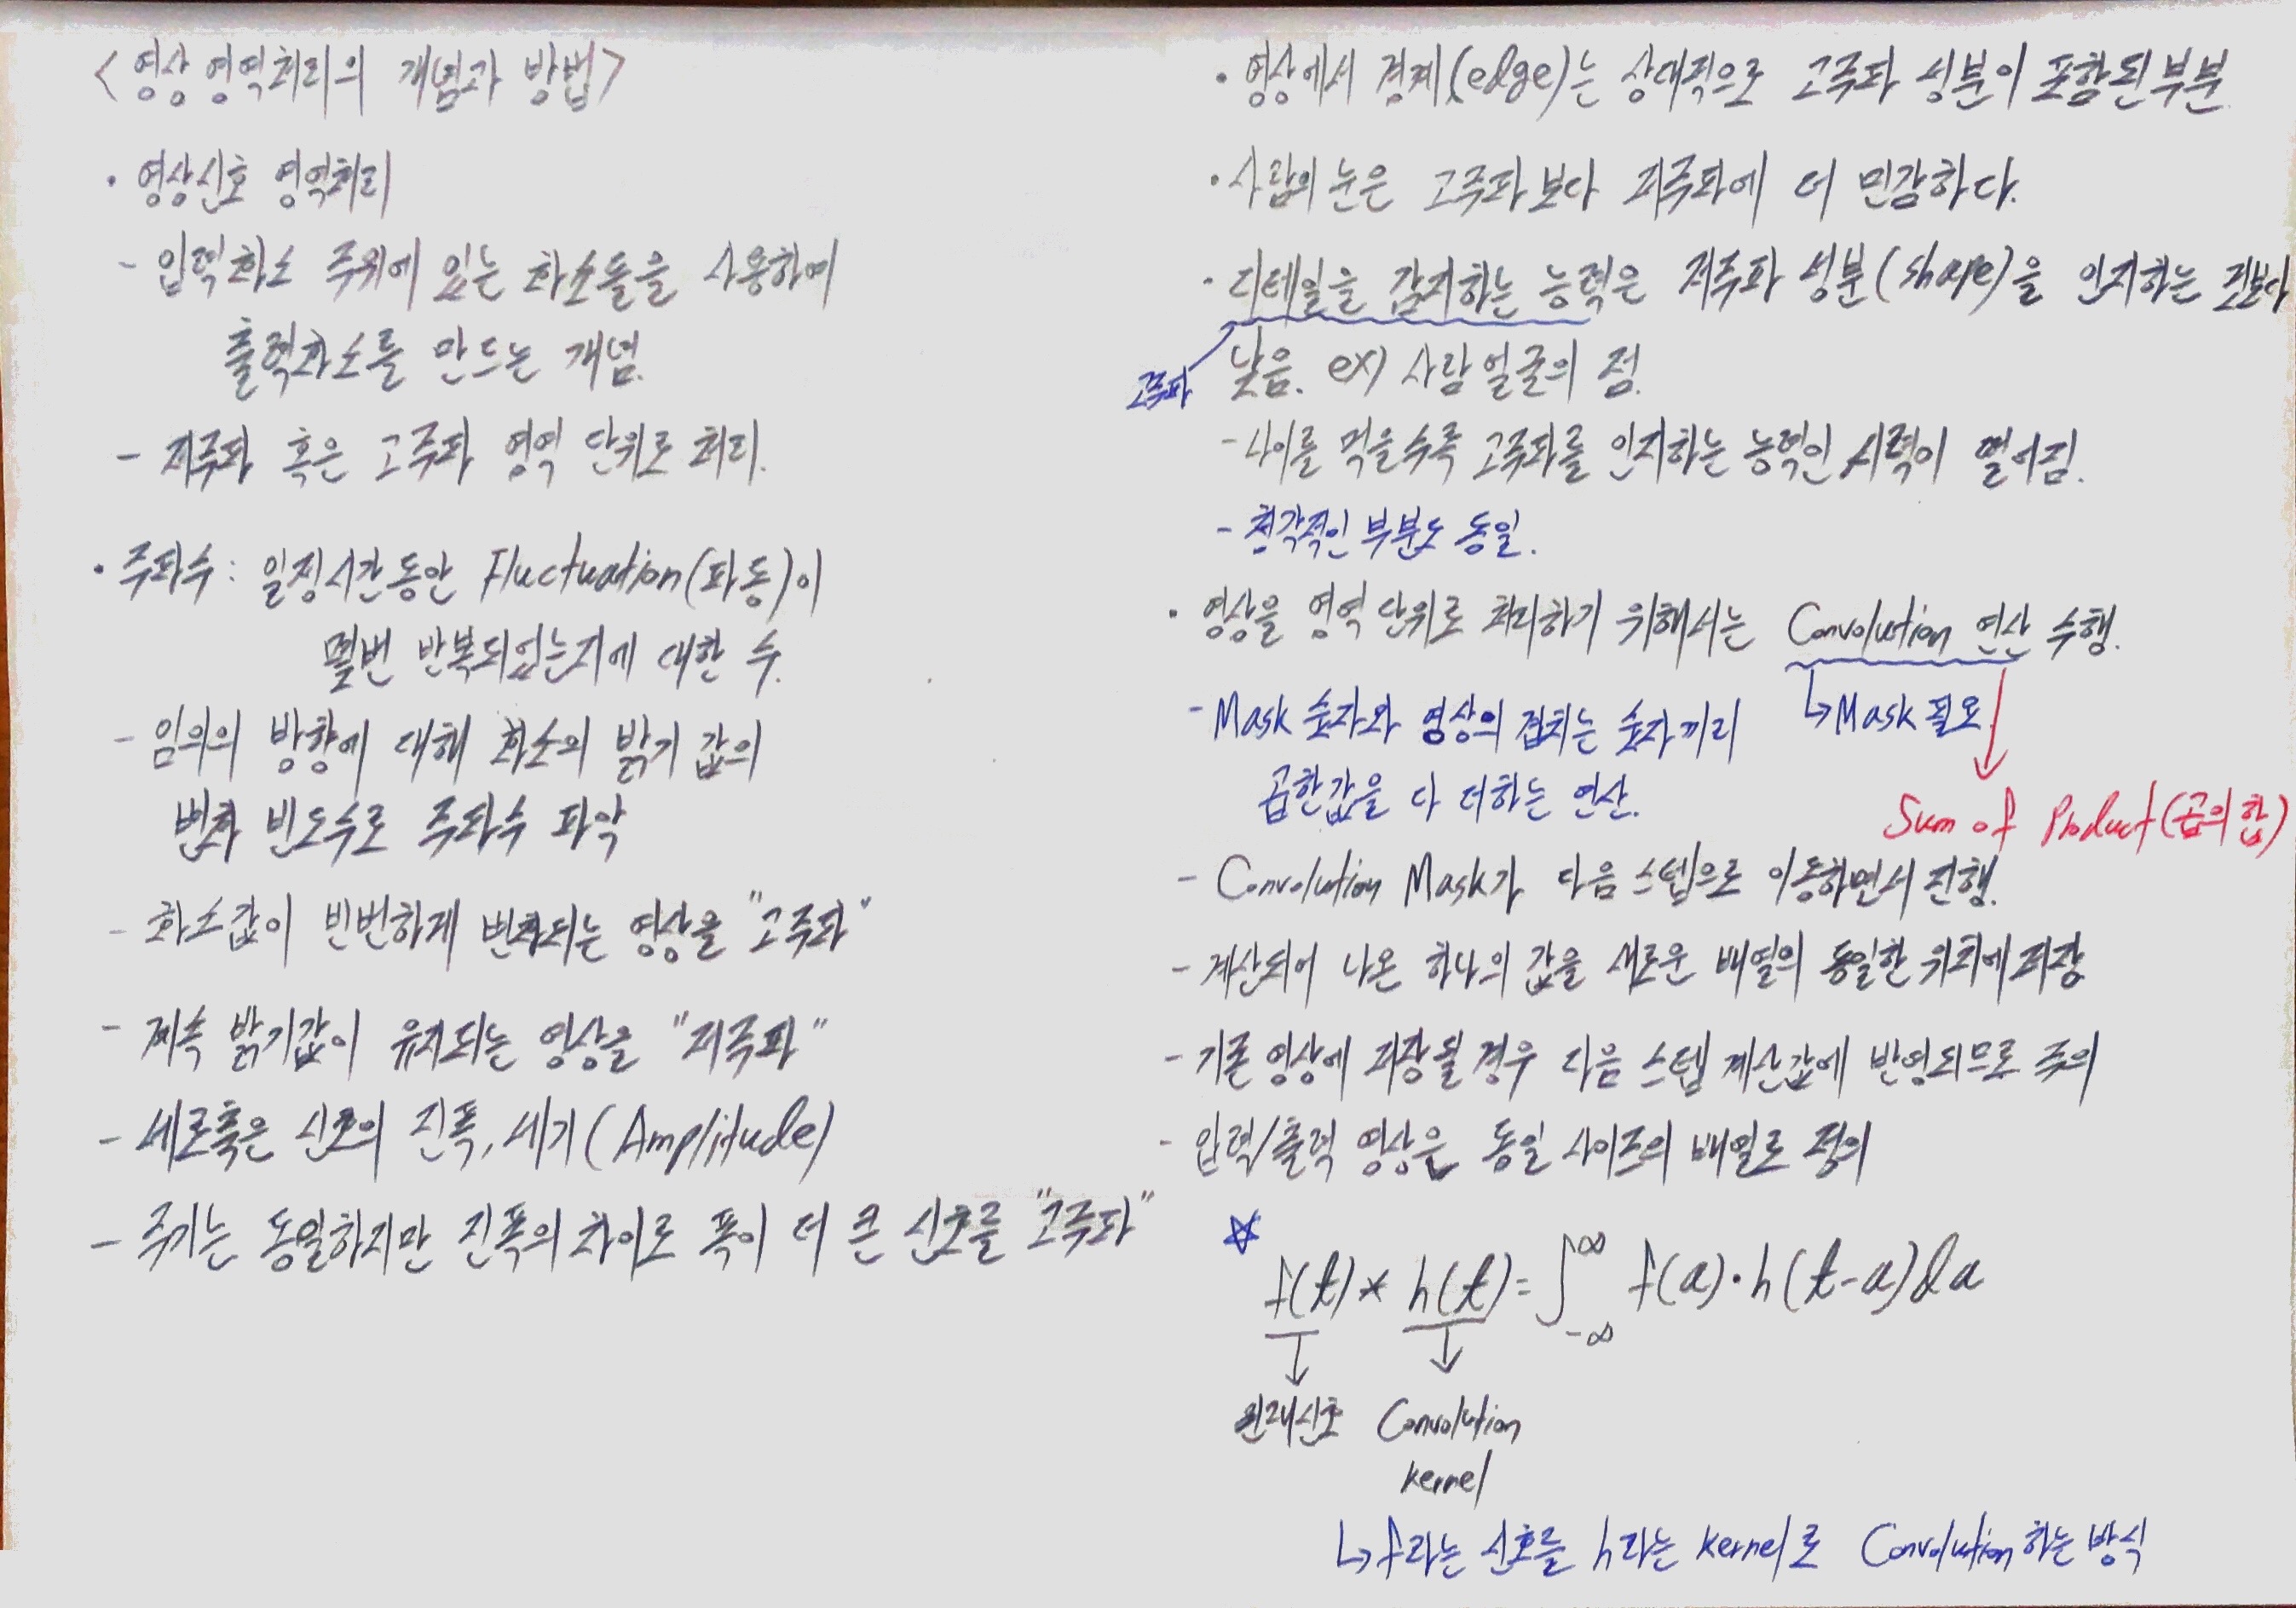 <영상 영역처리의 개념과 방법>
· 영상신호 영역처리
- 입력화소 주위에 있는 화소들을 사용하여
출력화소를 만드는 개념.
- 저주파 혹은 고주파 영역 단위로 처리.
· 주파수 : 일정시간동안 Fluctuation(파동)이
몇번 반복되었는지에 대한 수.
- 임의의 방향에 대해 화소의 밝기 값의
변화 빈도수로 주파수 파악
- 화소값이 빈번하게 변화되는 영상을 "고주파"
- 계속 밝기값이 유지되는 영상을 "저주파"
- 세로축은 신호의 진폭, 세기(Amplitude)
- 주기는 동일하지만 진폭의 차이로 폭이 더 큰 신호를 "고주파"
· 영상에서 경계(edge)는 상대적으로 고주파 성분이 포함된 부분.
· 사람의 눈은 고주파보다 저주파에 더 민감하다.
· 디테일을 감지하는 능력은 저주파 성분(shape)을 인지하는 것보다
고주파 낮음. ex) 사람 얼굴의 점.
- 나이를 먹을수록 고주파를 인지하는 능력인 시력이 떨어짐.
- 청각적인 부분도 동일.
· 영상을 영역 단위로 처리하기 위해서는 Convolution 연산 수행.
↳ Mask 필요
- Mask 숫자와 영상의 겹치는 숫자끼리
곱한값을 다 더하는 연산.
Sum of Product(곱의 합)
- Convolution Mask가 다음 스텝으로 이동하면서 진행.
- 계산되어 나온 하나의 값을 새로운 배열의 동일한 위치에 저장
- 기존 영상에 저장될 경우 다음 스텝 계산값에 반영되므로 주의
- 입력/출력 영상은 동일 사이즈의 배열로 정의
☆ f(t) * h(t) = ∫_{-∞}^{∞} f(a)·h(t-a)da
원래신호 Convolution
kernel
↳ f라는 신호를 h라는 kernel로 Convolution하는 방식